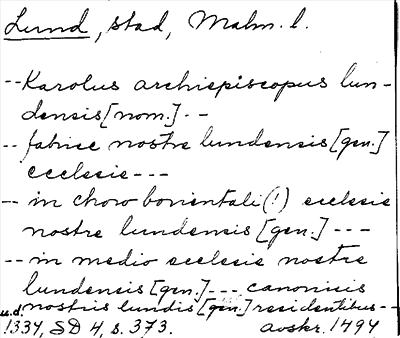 Lund, stad, Malm. l.
-- Karolus archiepiscopus lun-
densis [nom.] --
-- fabrice nostre lundensis [gen.]
ecclesie ---
-- in choro borientali (!) ecclesie
nostre lundensis [gen.] ---
-- in medio ecclesie nostre
lundensis [gen.] --- canonicis
nostris lundis [gen.] residentibus --
u.d.
1334, SD 4, s. 373. avskr. 1494